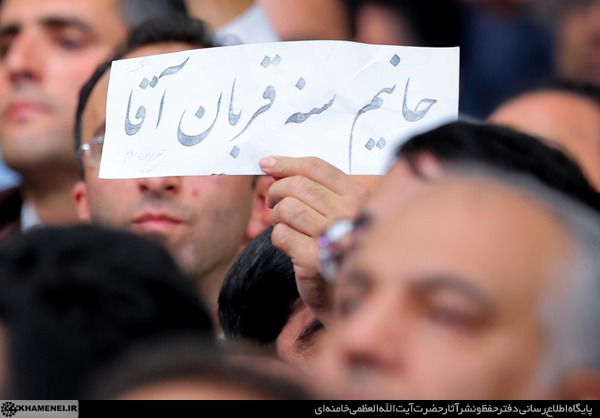 جانیم سنه قربان آقا
KHAMENEI.IR
پایگاه اطلاع‌رسانی دفتر حفظ و نشر آثار حضرت آیت‌الله‌العظمی خامنه‌ای